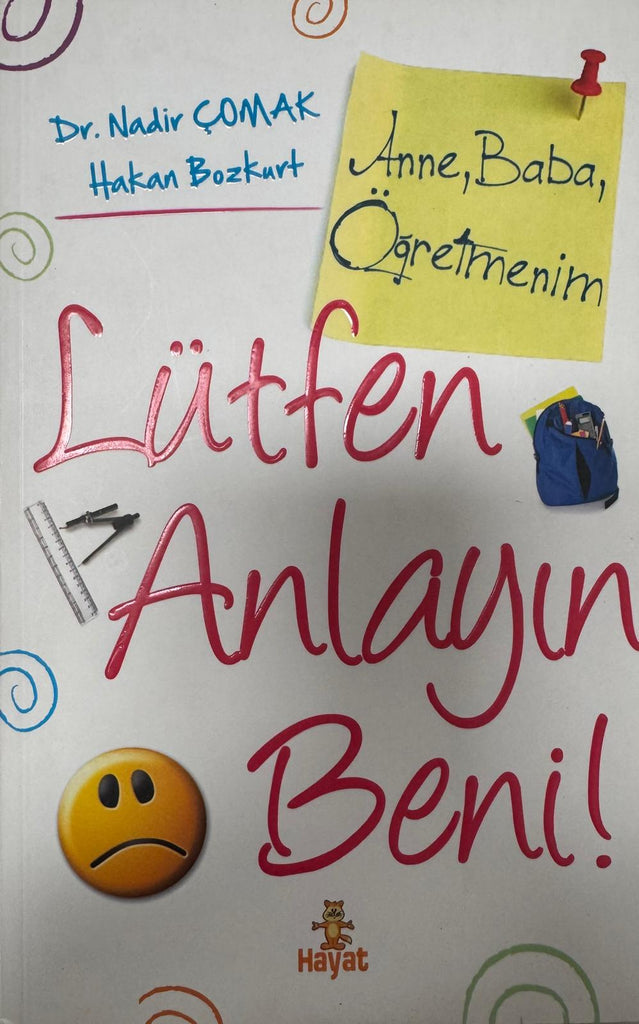 Dr. Nadir ÇOMAK
Hakan Bozkurt
Anne, Baba,
Öğretmenim
Lütfen
Anlayın
Beni!
Hayat